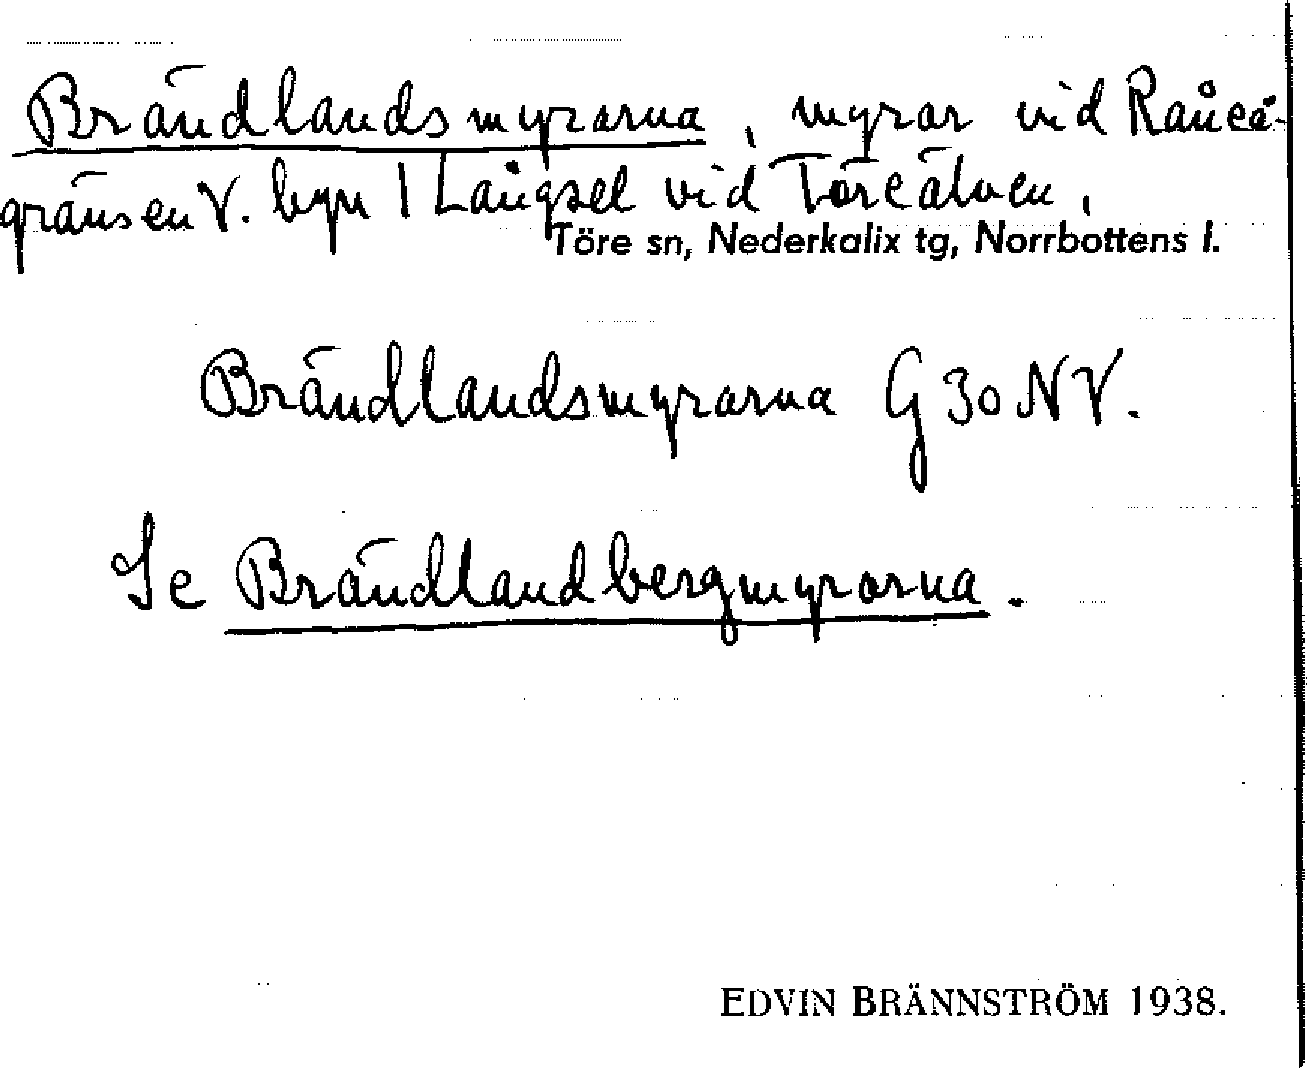 Brändlandsmyrarna, myrar vid Råneå-
gränsen V. byn 1 Långsel vid Töreälven,
Töre sn, Nederkalix tg, Norrbottens l.
Brändlandsmyrarna G 30 NV.
Se Brändlandbergmyrarna.
EDVIN BRÄNNSTRÖM 1938.